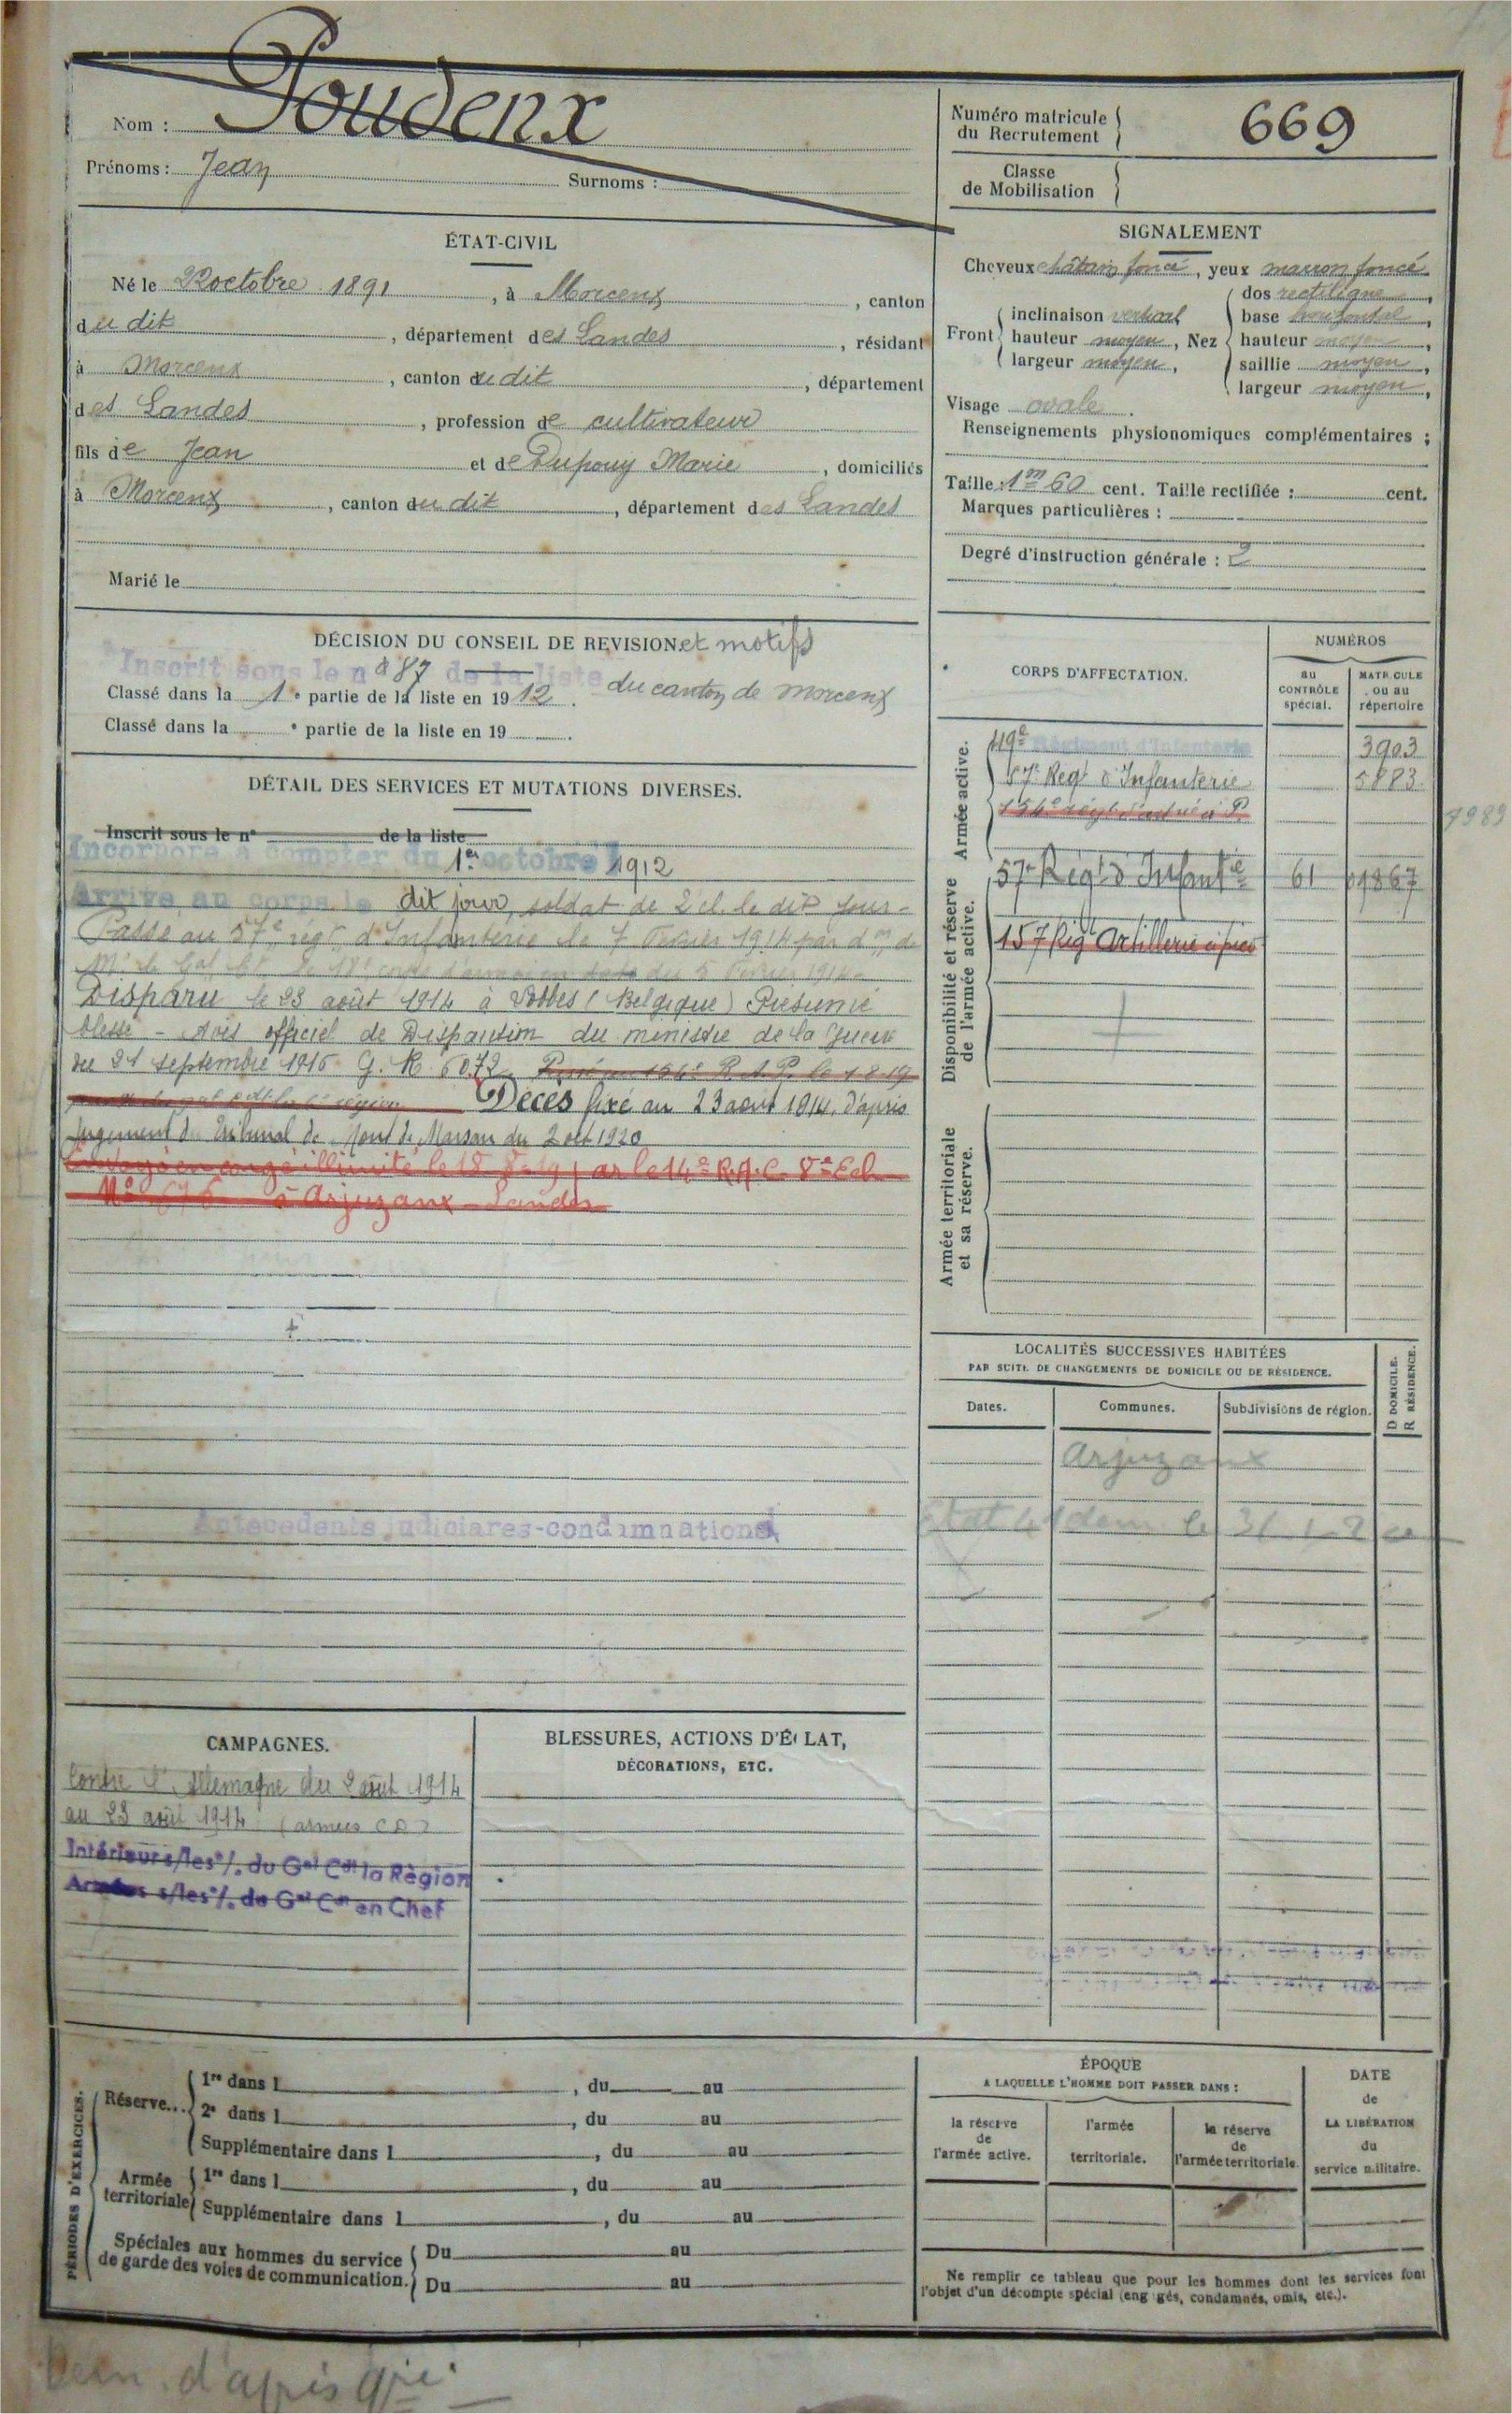 Nom : Poudenx
Prénoms : Jean Surnoms :
Numéro matricule du Recrutement 669
Classe de Mobilisation
ÉTAT-CIVIL
Né le octobre 1891, à Morcenx, canton
du dit, département des Landes, résidant
à Morcenx, canton du dit, département
des Landes, profession de cultivateur
fils de Jean et de Dupouy Marie, domiciliés
à Morcenx, canton du dit, département des Landes
Marié le
SIGNALEMENT
Cheveux châtain foncé, yeux marron foncé
Front inclinaison vertical
hauteur moyen,
largeur moyen,
Nez dos rectiligne,
base horizontal,
hauteur moyen,
saillie moyen,
largeur moyen,
Visage ovale.
Renseignements physionomiques complémentaires :
Taille : 1m 60 cent. Taille rectifiée : cent.
Marques particulières :
Degré d'instruction générale : 2
DÉCISION DU CONSEIL DE REVISION et motifs
Inscrit sous le n° 87 de la liste du canton de Morcenx
Classé dans la 1e partie de la liste en 1912.
Classé dans la e partie de la liste en 19 .
DÉTAIL DES SERVICES ET MUTATIONS DIVERSES.
Inscrit sous le n° de la liste
Incorporé à compter du 1er octobre 1912
Arrivé au corps le dit jour, soldat de 2 cl. le dit jour-
Passé au 57e régt d'Infanterie le 7 février 1914 par don de
Mr le Gal Ct le 18e corps d'armée en date du 5 février 1914
Disparu le 23 août 1914 à Lobbes (Belgique) Présumé
blessé - Avis officiel de Disparition du ministre de la Guerre
du 21 septembre 1916 G. R. 6072. Passé au 154e R.A.P. le 1-8-19
Décès fixé au 23 août 1914, d'après
jugement du Tribunal de Mont de Marsan du 2 oct 1920
Envoyé en congé illimité le 18 par le 14e R.A.C. 8e Ech
à Arjuzanx - Landes
Antécédents judiciares-condamnations
CORPS D'AFFECTATION.
NUMÉROS
au CONTRÔLE spécial.
MATRICULE ou au répertoire
Armée active.
49e Régiment d'Infanterie 3903
57e Regt d'Infanterie 5883
154e régt d'artie à P. 7989
Disponibilité et réserve de l'armée active.
57e Régt d'Infantie 61 01867
157 Rigt Artillerie à pied
Armée territoriale et sa réserve.
LOCALITÉS SUCCESSIVES HABITÉES
PAR SUITE DE CHANGEMENTS DE DOMICILE OU DE RÉSIDENCE.
Dates. Communes. Subdivisions de région. D DOMICILE. R RÉSIDENCE.
Arjuzanx
CAMPAGNES.
Contre l'Allemagne du 2 août 1914
au 23 août 1914 (armées
Intérieur s/les °/. du Gal Cdt la Région
Armées s/les °/. du Gal Ct en Chef
BLESSURES, ACTIONS D'ÉCLAT,
DÉCORATIONS, ETC.
PÉRIODES D'EXERCICES.
Réserve... 1re dans l , du au
2e dans l , du au
Supplémentaire dans l , du au
Armée territoriale 1re dans l , du au
Supplémentaire dans l , du au
Spéciales aux hommes du service de garde des voies de communication. Du au
Du au
ÉPOQUE
A LAQUELLE L'HOMME DOIT PASSER DANS :
la réserve de l'armée active.
l'armée territoriale.
la réserve de l'armée territoriale.
DATE de LA LIBÉRATION du service militaire.
Ne remplir ce tableau que pour les hommes dont les services font
l'objet d'un décompte spécial (engagés, condamnés, omis, etc.).
d'après